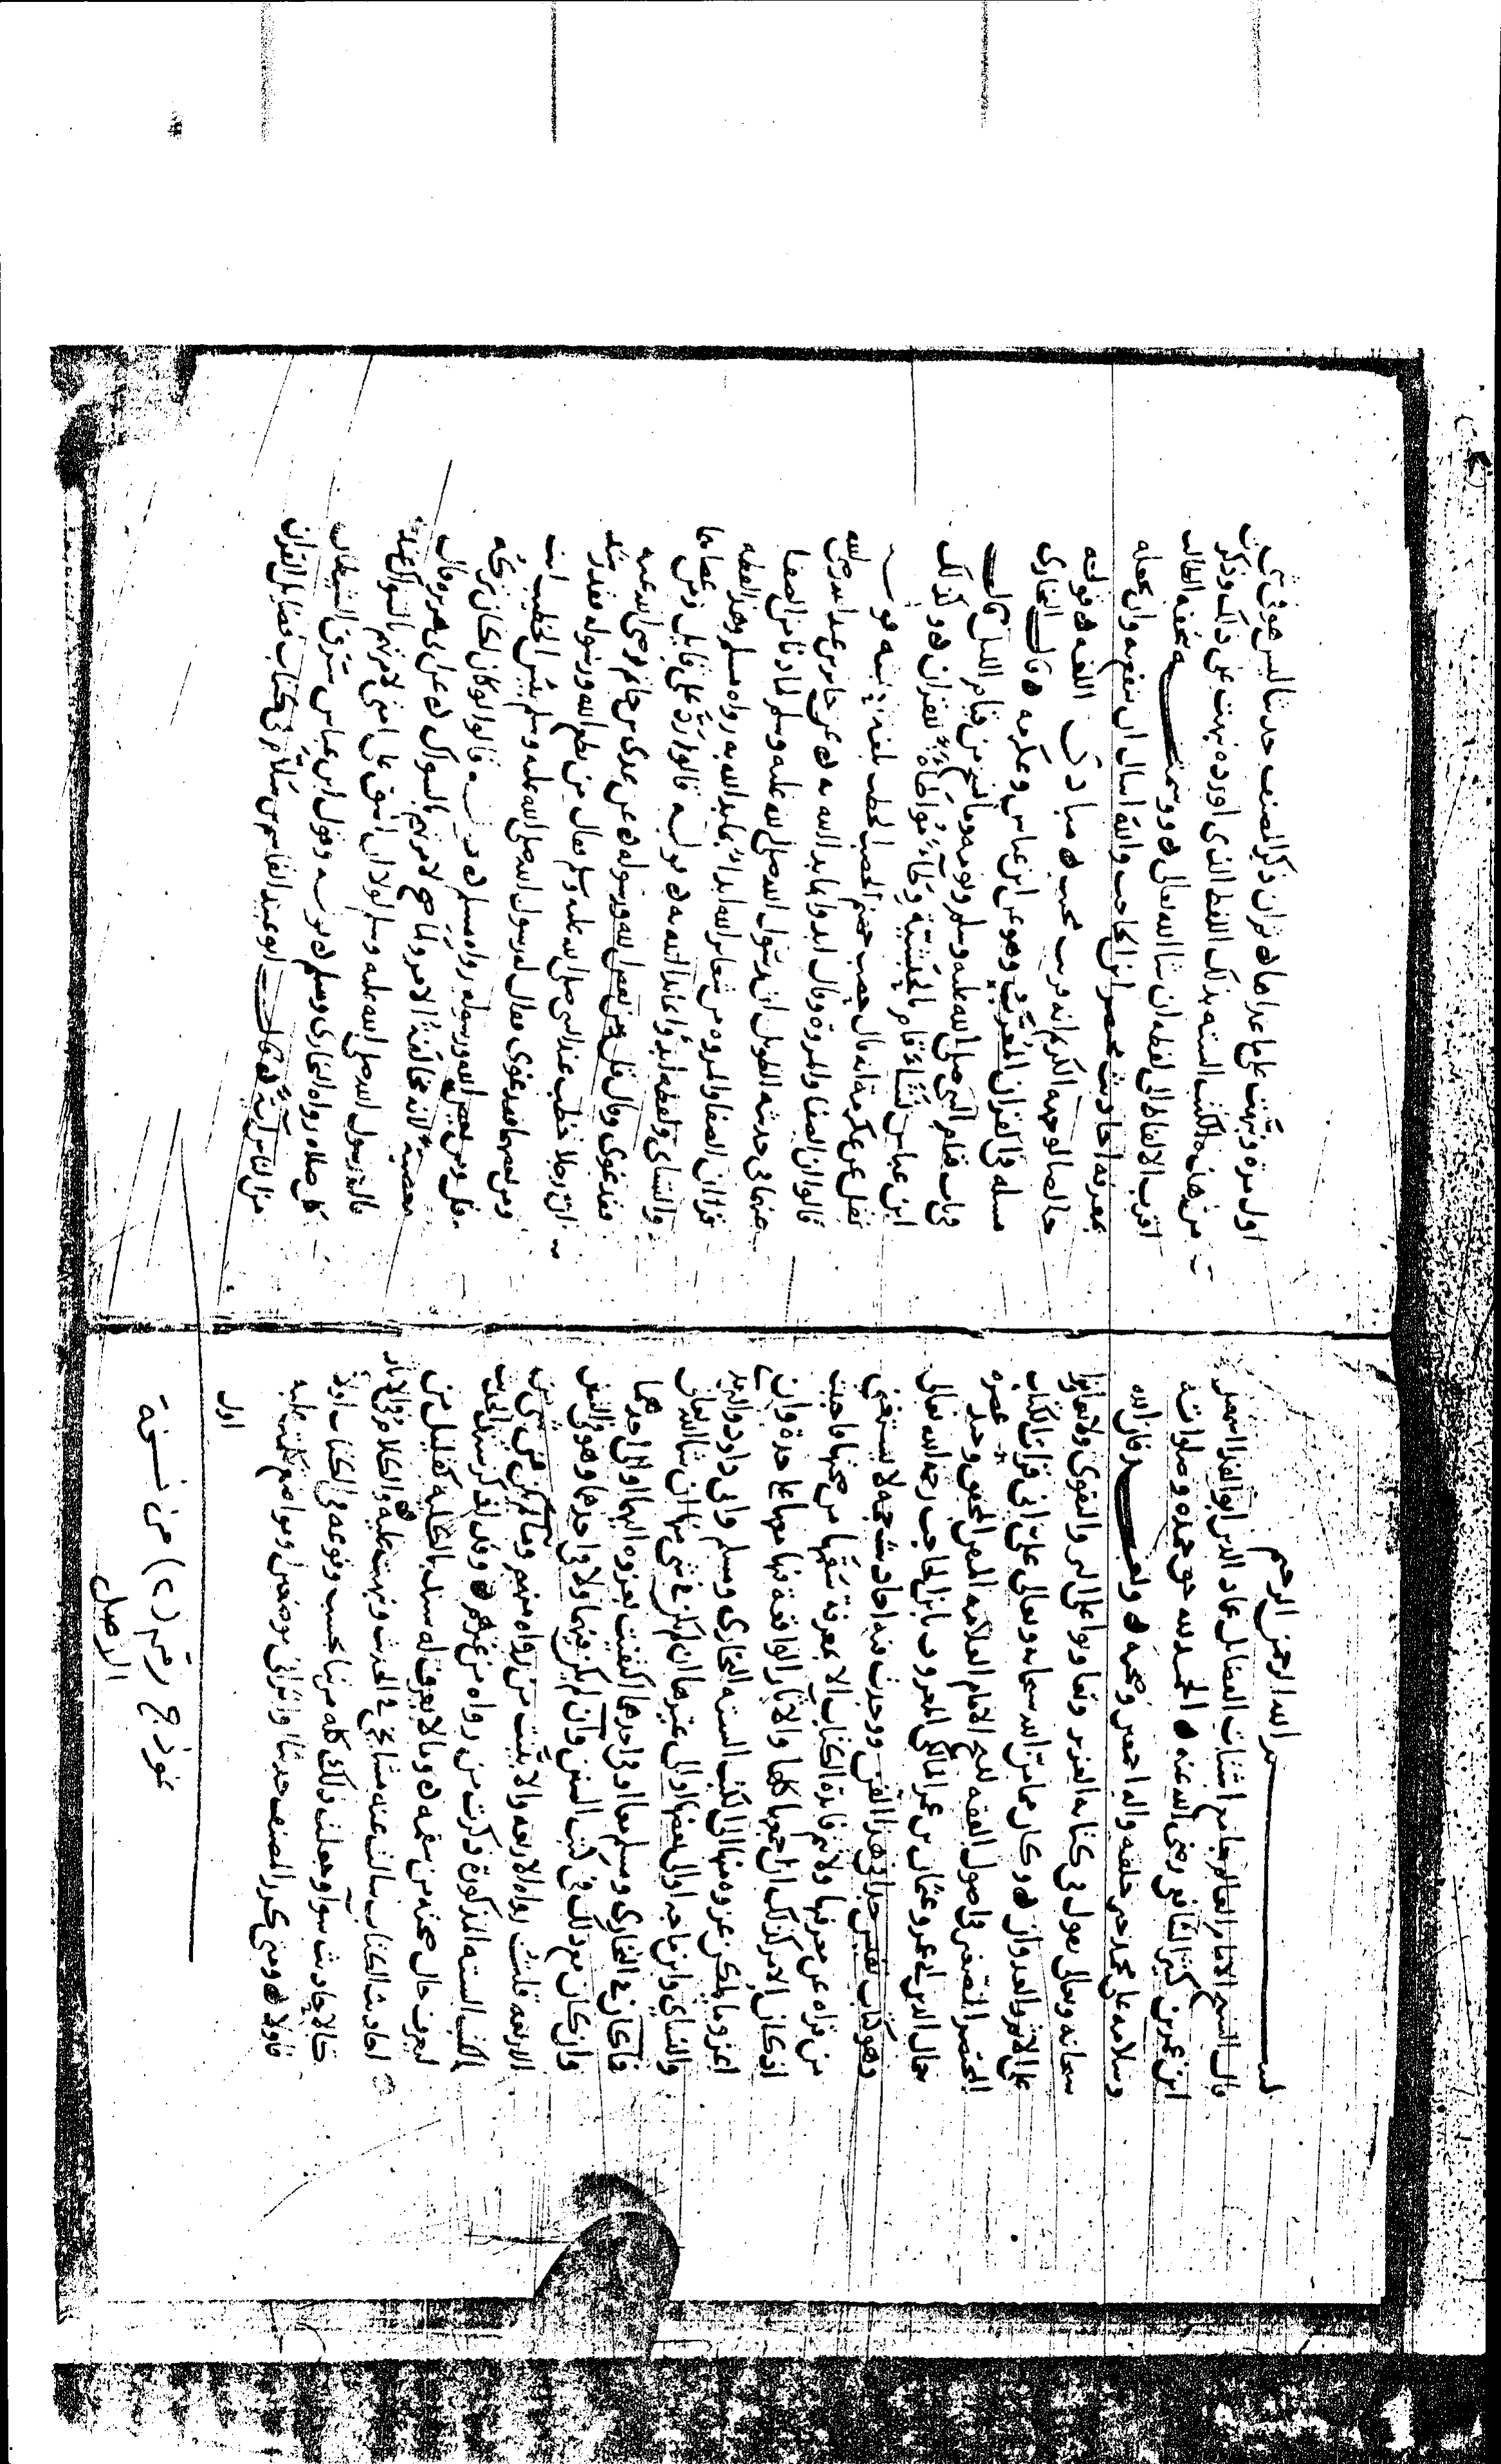 بسم الله الرحمن الرحيم
قال الشيخ الامام العالم جامع اشتات الفضايل عماد الدين ابو الفدا اسمعيل
ابن عمر بن كثير الشافعي رضي الله عنه الحمد لله حق حمده وصلواته
وسلامه على محمد خير خلقه واله اجمعين وصحبه وبعد فان الله
سبحانه وتعالى يقول في كتابه العزيز وتعاونوا على البر والتقوى ولا تعاونوا
على الاثم والعدوان وكان مما من الله سبحانه وتعالى علي اني قرات الكتاب
المختصر الصغير في اصول الفقه للشيخ الامام العلامه المحقق وحيد عصره
جمال الدين ابي عمرو عثمان بن عمر المالكي المعروف بابن الحاجب رحمه الله تعالى
وهو كتاب نفيس جدا في هذا الفن ووجدت فيه احاديث جمه لا يستغني
من قراه عن معرفتها ولا تتم فايدة الكتاب الا بمعرفة سقمها من صحتها فاحببت
اذ كان الامر كذلك ان اجمعها كلها والاثار الواقعة فيها معها على حدة وان
اعزو ما يمكن عزوه منها الى الكتب الستة البخاري ومسلم وابي داود والترمذي
والنسائي وابن ماجه او الى بعضها او الى غيرها ان لم يكن في شي منها ان شا الله تعالى
فما كان في البخاري ومسلم معا او في احدهما اكتفيت بعزوه اليهما او الى احدهما
وان كان مع ذلك في كتب السنن وان لم يكن فيهما ولا في احدهما وهو في السنن
الاربعه قلت رواه الاربعه والا بينت من رواه منهم وما لم يكن في شي من
الكتب الستة المذكورة ذكرت من رواه من غيرهم وقد اذكر سند الحديث
ليعرف حال صحته من سقمه وما لا يعرف له سند بالكليه فقليل من
احاديث الكتاب سالت عنه مشايخي في الحديث ونبهت عليه والكلام في الاثار
كالاحاديث سوا وجعلت ذلك كله مرتبا بحسب وقوعه في الكتاب اولا
فاولا ومتى كرر المصنف حديثا او اثرا في موضعين او مواضع تكلمت عليه
اول
اول مرة ونبهت على ما عداها فان ذكر المصنف حديثا ليس هو في شي
من هذه الكتب الستة بذلك اللفظ الذي اورده نبهت على ذلك وذكرت
اقرب الالفاظ الى لفظه ان شا الله تعالى وسميته تحفة الطالب
بمعرفة احاديث مختصر ابن الحاجب والله اسال ان ينفع به وان يجعله
خالصا لوجهه الكريم انه قريب مجيب مبادئ اللغة قوله
مسله في القران المعرب وهو عن ابن عباس وعكرمه قال البخاري
في باب قيام النبي صلى الله عليه وسلم ونومه وما نسخ من قيام الليل قال
ابن عباس نشأ قام بالحبشية وطاء مواطاة للقران وكذلك
نقل عن عكرمة انه قال حصب جهنم الحصب الحطب بلغة قوله
قالوا ان الصفا والمروة وقال ابدوا بما بدا الله به عن جابر بن عبد الله رضي الله
عنهما في حديثه الطويل ان رسول الله صلى الله عليه وسلم لما دنا من الصفا
قرا ان الصفا والمروة من شعاير الله ابدا بما بدا الله به رواه مسلم وهذا لفظه
والنسائي ولفظه ابدوا بما بدا الله به قوله قالوا رد على قايل ومن عصاهما
فقد غوى وقال قل ومن يعص الله ورسوله عن عدي بن حاتم رضي الله عنه
ان رجلا خطب عند النبي صلى الله عليه وسلم فقال من يطع الله ورسوله فقد رشد
ومن يعصهما فقد غوى فقال رسول الله صلى الله عليه وسلم بئس الخطيب انت
قل ومن يعص الله ورسوله رواه مسلم قوله قالوا لو كان لكان تركه
معصية لانه مخالفة الامر ولما صح لامرتهم بالسواك عن ابي هريره قال
قال رسول الله صلى الله عليه وسلم لولا ان اشق على امتي لامرتهم بالسواك عند
كل صلاة رواه البخاري ومسلم قوله وقول ابن عباس سرق الشيطان
من الناس اية قال ابو عبيد القاسم بن سلام في كتاب فضايل القران
نموذج رقم (٢) من نسخة
الاصل